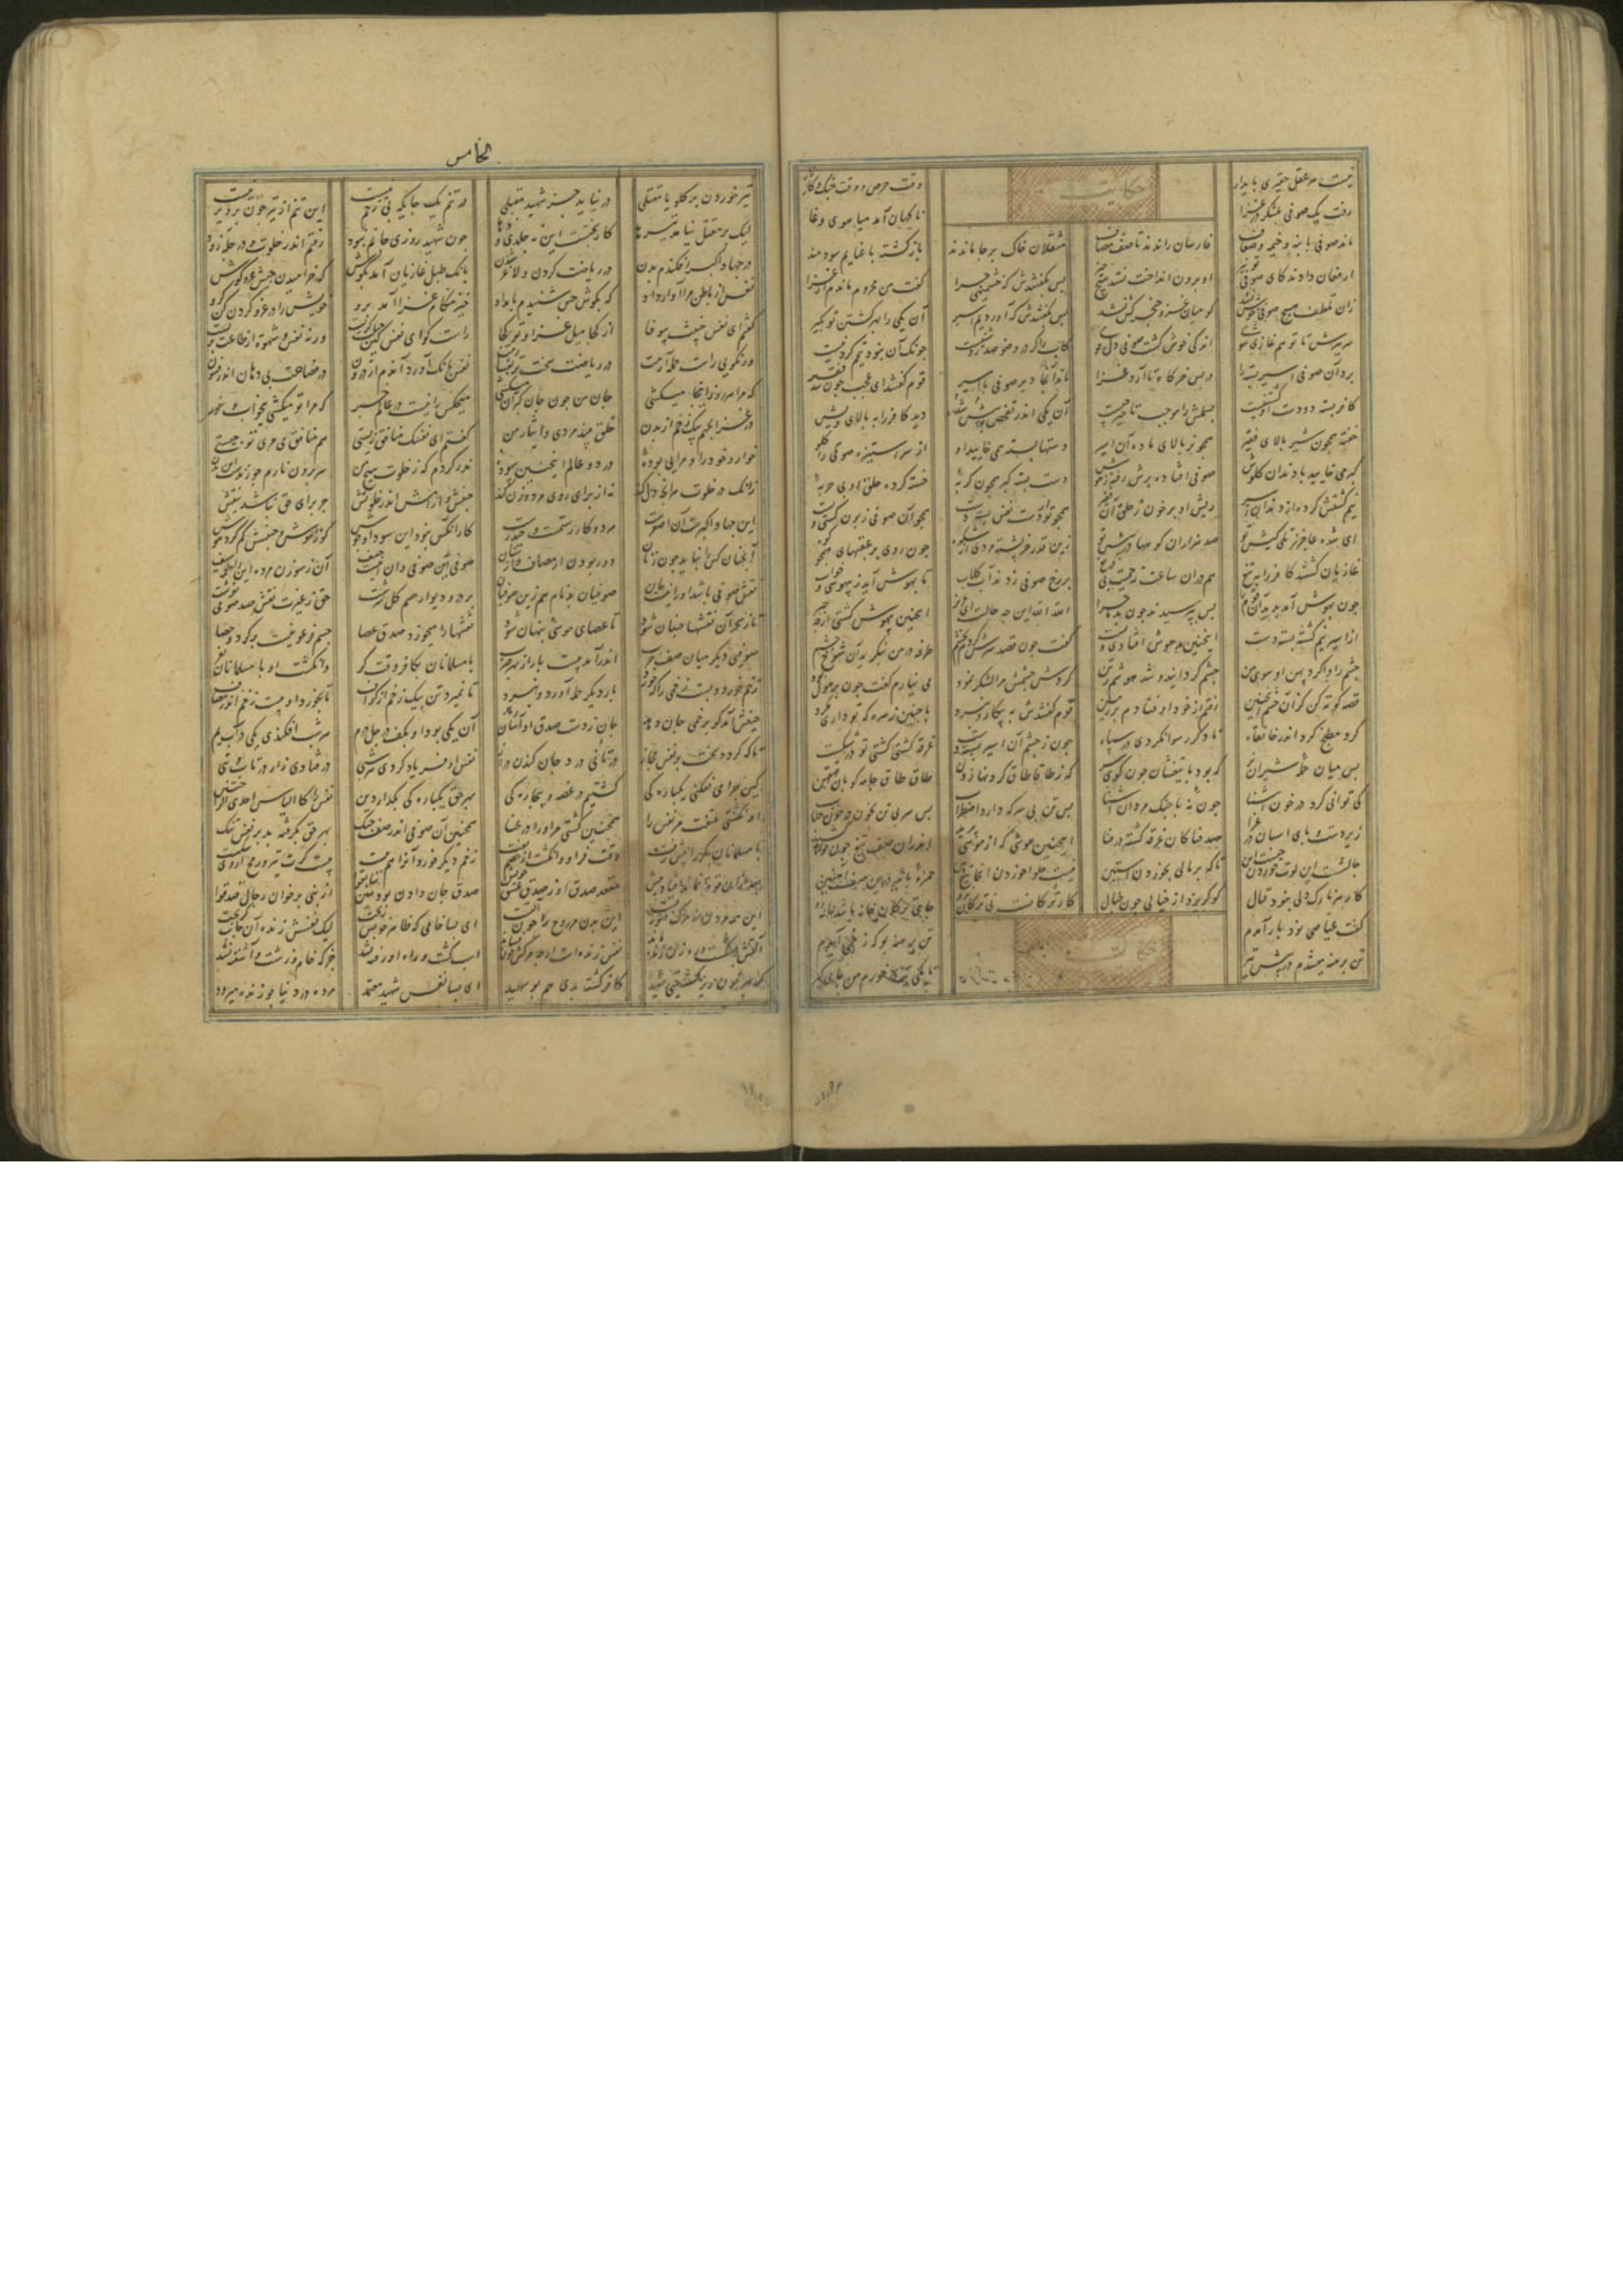 نیست مر عقل حقیری پایدار حکایت وقت حرص و وقت جنک و کارزار
رفت یک صوفی بلشکر در غزا ناکهان آمد هیاهوی وغا
ماند صوفی با بنه و خیمه و ضعاف فارسان راندند تا صف مصاف مثقلان خاک بر جا ماندند بازکشته با غنایم سودمند
ارمغان دادند کای صوفی تو نیز او برون انداخت نستد هیچ چیز پس بکفتندش که خشمینی چرا کفت من محروم ماندم از غزا
زان تلطف هیچ صوفی خوش نشد کو میان غزو خنجر کش نشد پس بکفتندش که آوردیم اسیر آن یکی را بهر کشتن تو بکیر
سر ببرش تا تو هم غازی شوی اندکی خوش کشت صوفی دل قوی کاب را کر در وضو صد روشنیست چونک آن نبود تیمم کردنیست
برد آن صوفی اسیر بسته را در پس خرکاه تا آرد غزا ماند آنجا دیر صوفی با اسیر قوم کفتند ای عجب چون شد فقیر
کافر بسته دو دست او کشتنیست بسملش را موجب تاخیر چیست آن یکی اندر تفحص در پیش دید کافر را ببالای ویش
خفته همچون شیر بالای فقیر همچو نر بالای ماده آن اسیر دستها بسته همی خایید او از سر استیزه صوفی را کلو
کبر می خایید با دندان کلوش صوفی افتاده بزیر و رفته هوش دست بسته کبر همچون کربه خسته کرده حلق او بی حربه
نیم کشتش کرده از دندان اسیر ریش او پر خون ز حلق آن فقیر همچو تو از دست نفس بسته دست همچو آن صوفی زبون کشتی و پست
ای شده عاجز ز تلی کیش تو صد هزاران کوهها در پیش تو زین قدر خرپشته مردی از شکوه چون روی بر عقبهای همچو کوه
غازیان کشتند کافر را بتیغ هم در آن ساعت ز حمیت بی دریغ بر رخ صوفی زدند آب و کلاب تا بهوش آید ز بیهوشی و خواب
چون بهوش آمد بدید آن قوم را پس بپرسیدند چون بد ماجرا الله الله این چه حالست ای عزیز اینچنین بیهوش کشتی از چه چیز
از اسیر نیم کشته بسته دست اینچنین مدهوش افتادی و پست کفت چون قصد سرش کردم بخشم طرفه در من بنکرید آن شوخ چشم
چشم را وا کرد پهن او سوی من چشم کردانید و شد هوشم ز تن کردش چشمش مرا لشکر نمود می نیارم کفت چون پر هول بود
قصه کوته کن کزان چشم اینچنین رفتم از خود اوفتادم بر زمین قوم کفتندش به پیکار و نبرد با چنین زهره که تو داری مکرد
کرد مطبخ کرد اندر خانقاه تا دکر رسوا نکردی در سپاه چون ز چشم آن اسیر بسته دست غرقه کشتی کشتی تو در شکست
پس میان حمله شیران نر که بود با تیغشان چون کوی سر که ز طاقا طاق کردنها زدن طاق طاق جامه کوبان ممتهن
کی توانی کرد در خون آشنا چون نه با جنک مردان آشنا بس تن بی سر که دارد اضطراب بس سر بی تن بخون بر چون حباب
زیر دست و پای اسبان در غزا صد فنا کان غرقه کشته در فنا اینچنین هوشی که از موشی پرید اندران صف تیغ چون خواهد کشید
چالشست این لوت خوردن نیست این تا که برمالی بخوردن آستین نیست حلوا خوردن اینجا تیغ بین حمزه باید درین صف آهنین
کار هر نازک دلی نبود قتال کو کریزد از خیالی چون خیال کار ترکانست نی ترکان برو جای ترکان خانه باشد خانه شو
کفت عیاضی نود بار آمدم حکایت تن برهنه بو که زخمی آیدم
تن برهنه میشدم در پیش تیر تا یکی تیری خورم من جای کیر
الخامس
تیر خوردن بر کلو یا مقتلی در نیابد جز شهید مقبلی در تنم یک جایکه بی زخم نیست این تنم از تیر چون پرویزنیست
لیک بر مقتل نیامد تیرها کار بختست این نه جلدی و دها چون شهیدی روزی جانم نبود رفتم اندر خلوت و در چله زود
در جهاد اکبر افکندم بدن در ریاضت کردن و لاغر شدن بانک طبل غازیان آمد بکوش که خرامیدن جیش غزو کوش
نفس از باطن مرا آواز داد که بکوش حس شنیدم بامداد خیز هنکام غزا آمد برو خویش را در غزو کردن کن کرو
کفتم ای نفس خبیث بیوفا از کجا میل غزا و تو کجا راست کو ای نفس کین حیلت کریست ورنه نفس و شهوة از طاعت بریست
ور نکویی راست حمله آرمت در ریاضت سخت تر افشارمت نفس بانک آورد آندم از درون در فصاحت بی دهان اندر فسون
که مرا هر روز اینجا میکشی جان من چون جان کبران میکشی هیچکس را نیست از حالم خبر که مرا تو میکشی بیخواب و خور
در غزا بجهم بیک زخم از بدن خلق بیند مردی و ایثار من کفتم ای نفسک منافق زیستی هم منافق می مری تو چیستی
خوار و خودرا و مرایی بوده در دو عالم اینچنین بیهوده نذر کردم که ز خلوت هیچ من سر برون نارم چو زنده ست این بدن
زانک در خلوت هر آنچ تن کند نه از برای روی مرد و زن کند جنبش و آرامش اندر خلوتش جز برای حق نباشد نیتش
این جهاد اکبرست آن اصغرست هر دو کار رستمست و حیدرست کار آنکس نبود این سودا و جوش کو ز موش و جنبشش کم کرد هوش
آنچنان کس را بباید چون زنان دور بودن از مصاف و از سنان صوفی آن صوفی این اینت حیف آن ز سوزن مرده این را طعمه سیف
نقش صوفی باشد او را نیست جان صوفیان بدنام هم زین صوفیان بر در و دیوار جسم کل سرشت حق ز غیرت نقش صد صوفی نوشت
تا ز سحر آن نقشها جنبان شود تا عصای موسی پنهان شود نقشها را میخورد صدق عصا چشم فرعونیست پر کرد و حصا
صوفی دیکر میان صف حرب اندر آمد بیست بار از بهر ضرب با مسلمانان بکافر وقت کر وانکشت او با مسلمانان بفر
زخم خورد و بست زخمی را که خورد بار دیکر حمله آورد و نبرد تا نمیرد تن بیک زخم از کزاف تا بخورد او بیست زخم اندر مصاف
حیفش آمد کو بزخمی جان دهد جان ز دست صدق او آسان رهد آن یکی بود او بکف در چل درم هر شب افکندی یکی در آب یم
تا که کردد سخت بر نفس مجاز در تانی درد جان کندن دراز نفس او فریاد کردی هر شبی در فتادی زار در تاب و تبی
کین چرا می نفکنی یکبارکی کشتیم در غصه و بیچارکی بهر حق یکبارکی بکذار دین نفس را کالیاس احدی الراحتین
او نکشتی ملتفت مر نفس را همچنین کشتی مر او را در عنا همچنین آن صوفی اندر صف جنک بهر حق بکرفته بد بر نفس تنک
با مسلمانان بکر او پیش رفت وقت فر او وانکشت از خصم تفت زخم دیکر خورد آنرا هم ببست بیست کرت تیر و رمح از وی شکست
بعد ازان قوت نماند افتاد پیش مقعد صدق او ز صدق عشق خویش صدق جان دادن بود هین سابقوا از نبی برخوان رجال صدقوا
این همه مردن نه مرک صورتست این بدن مر روح را چون آلتست ای بسا خامی که ظاهر خونش ریخت لیک نفسش زنده آن جانب کریخت
آلتش بشکست و رهزن زنده ماند نفس زنده است ار چه مرکب خون فشاند اسب کشت و راه او رفته نشد جز که خام و زشت و آشفته نشد
کافر کشته بدی هم بوسعید ای بسا نفس شهید معتمد مرده در دنیا چو زنده میرود